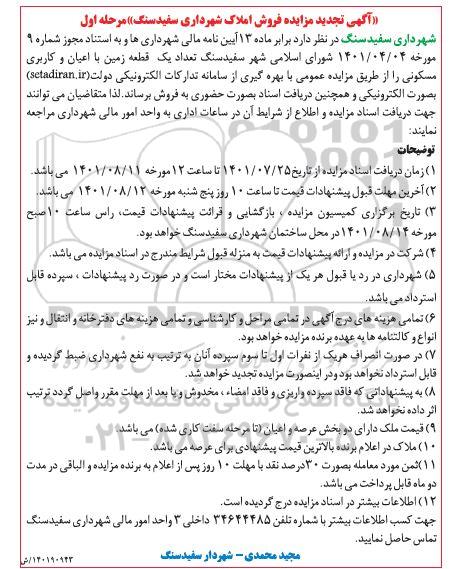 «آگهی تجدید مزایده فروش املاک شهرداری سفیدسنگ»مرحله اول
شهرداری سفیدسنگ در نظر دارد برابر ماده ۱۳آیین نامه مالی شهرداری ها و به استناد مجوز شماره ۹
مورخه ۱۴۰۱/۰۴/۰۴ شورای اسلامی شهر سفیدسنگ تعداد یک قطعه زمین با اعیان و کاربری
مسکونی را از طریق مزایده عمومی با بهره گیری از سامانه تدارکات الکترونیکی دولت(setadiran.ir)
بصورت الکترونیکی و همچنین دریافت اسناد بصورت حضوری به فروش برساند.لذا متقاضیان می توانند
جهت دریافت اسناد مزایده و اطلاع از شرایط آن در ساعات اداری به واحد امور مالی شهرداری مراجعه
نمایند:
توضیحات
۱) زمان دریافت اسناد مزایده از تاریخ۱۴۰۱/۰۷/۲۵ تا ساعت ۱۲مورخه ۱۴۰۱/۰۸/۱۱ می باشد.
۲) آخرین مهلت قبول پیشنهادات قیمت تا ساعت ۱۰ روز پنج شنبه مورخه ۱۴۰۱/۰۸/۱۲ می باشد.
۳) تاریخ برگزاری کمیسیون مزایده ، بازگشایی و قرائت پیشنهادات قیمت، راس ساعت ۱۰صبح
مورخه ۱۴۰۱/۰۸/۱۴در محل ساختمان شهرداری سفیدسنگ خواهد بود.
۴) شرکت در مزایده و ارائه پیشنهادات قیمت به منزله قبول شرایط مندرج در اسناد مزایده می باشد.
۵) شهرداری در رد یا قبول هر یک از پیشنهادات مختار است و در صورت رد پیشنهادات ، سپرده قابل
استرداد می باشد.
۶) تمامی هزینه های درج آگهی در تمامی مراحل و کارشناسی و تمامی هزینه های دفترخانه و انتقال و نیز
انواع و کالتنامه ها به عهده برنده مزایده خواهد بود.
۷) در صورت انصراف هریک از نفرات اول تا سوم سپرده آنان به ترتیب به نفع شهرداری ضبط گردیده و
قابل استرداد نخواهد بود ودر اینصورت مزایده تجدید خواهد شد.
۸) به پیشنهاداتی که فاقد سپرده واریزی و فاقد امضاء ، مخدوش و یا بعد از مهلت مقرر واصل گردد ترتیب
اثر داده نخواهد شد.
۹) قیمت ملک دارای دو بخش عرصه و اعیان (تا مرحله سفت کاری شده) می باشد.
۱۰) ملاک در اعلام برنده بالاترین قیمت پیشنهادی برای عرصه می باشد.
۱۱)ثمن مورد معامله بصورت ۳۰درصد نقد با مهلت ۱۰ روز پس از اعلام به برنده مزایده و الباقی در مدت
دو ماه قابل پرداخت می باشد.
۱۲) اطلاعات بیشتر در اسناد مزایده درج گردیده است.
جهت کسب اطلاعات بیشتر با شماره تلفن ۳۴۶۴۴۴۸۵ داخلی ۳ واحد امور مالی شهرداری سفیدسنگ
تماس حاصل نمایید.
مجید محمدی - شهردار سفیدسنگ
۱۴۰۱۹۰۹۴۳/ش